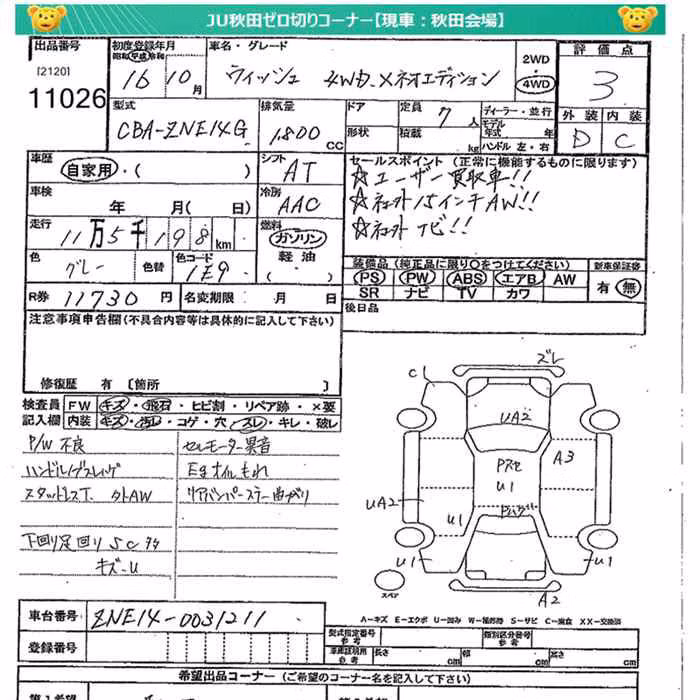 JU秋田ゼロ切りコーナー【現車：秋田会場】
出品番号
[2120]
11026
初度登録年月
昭和 平成 令和
16 10月
車名・グレード
ウィッシュ 4WD. Xネオエディション
2WD
・
4WD
評価点
3
外装 内装
D C
型式
CBA-ZNE14G
排気量
1,800 CC
ドア
形状
定員 7人
積載 kg
ディーラー・並行
モデル年式 年
ハンドル 左・右
車歴
自家用・( )
シフト
AT
車検
年 月( 日)
冷房
AAC
走行
11万5千198km
燃料
ガソリン
軽油
( )
色
グレー
色替
色コード
1E9
R券 11730円
名変期限 月 日
セールスポイント (正常に機能するものに限ります)
☆ユーザー買取車!!
☆ネオ外15インチAW!!
☆ネオ外ナビ!!
装備品(純正品に限り○をつけてください)
PS PW ABS エアB AW
SR ナビ TV カワ
新車保証書
有・無
後日品
注意事項申告欄(不具合内容等は具体的に記入して下さい)
修復歴 有〔箇所 〕
検査員記入欄
FW キズ・飛石・ヒビ割・リペア跡・×要
内装 キズ・汚レ・コゲ・穴・スレ・キレ・破レ
P/W 不良
スタッドレスT. 外AW
下回り足回り SC
キズ・U
セルモーター異音
Egオイルもれ
リアバンパーステー曲がり
C1
ズレ
UA2
A3
U1
UA2
U1
U1
U1
A2
スペア
A-キズ E-エクボ U-凹み W-補修跡 S-サビ C-腐食 XX-交換済
車台番号 ZNE14-0031211
登録番号
型式指定番号
参考
類別区分番号
参考
車庫証明用
参考
長さ cm 幅 cm 高さ cm
希望出品コーナー (ご希望のコーナー名を記入して下さい)